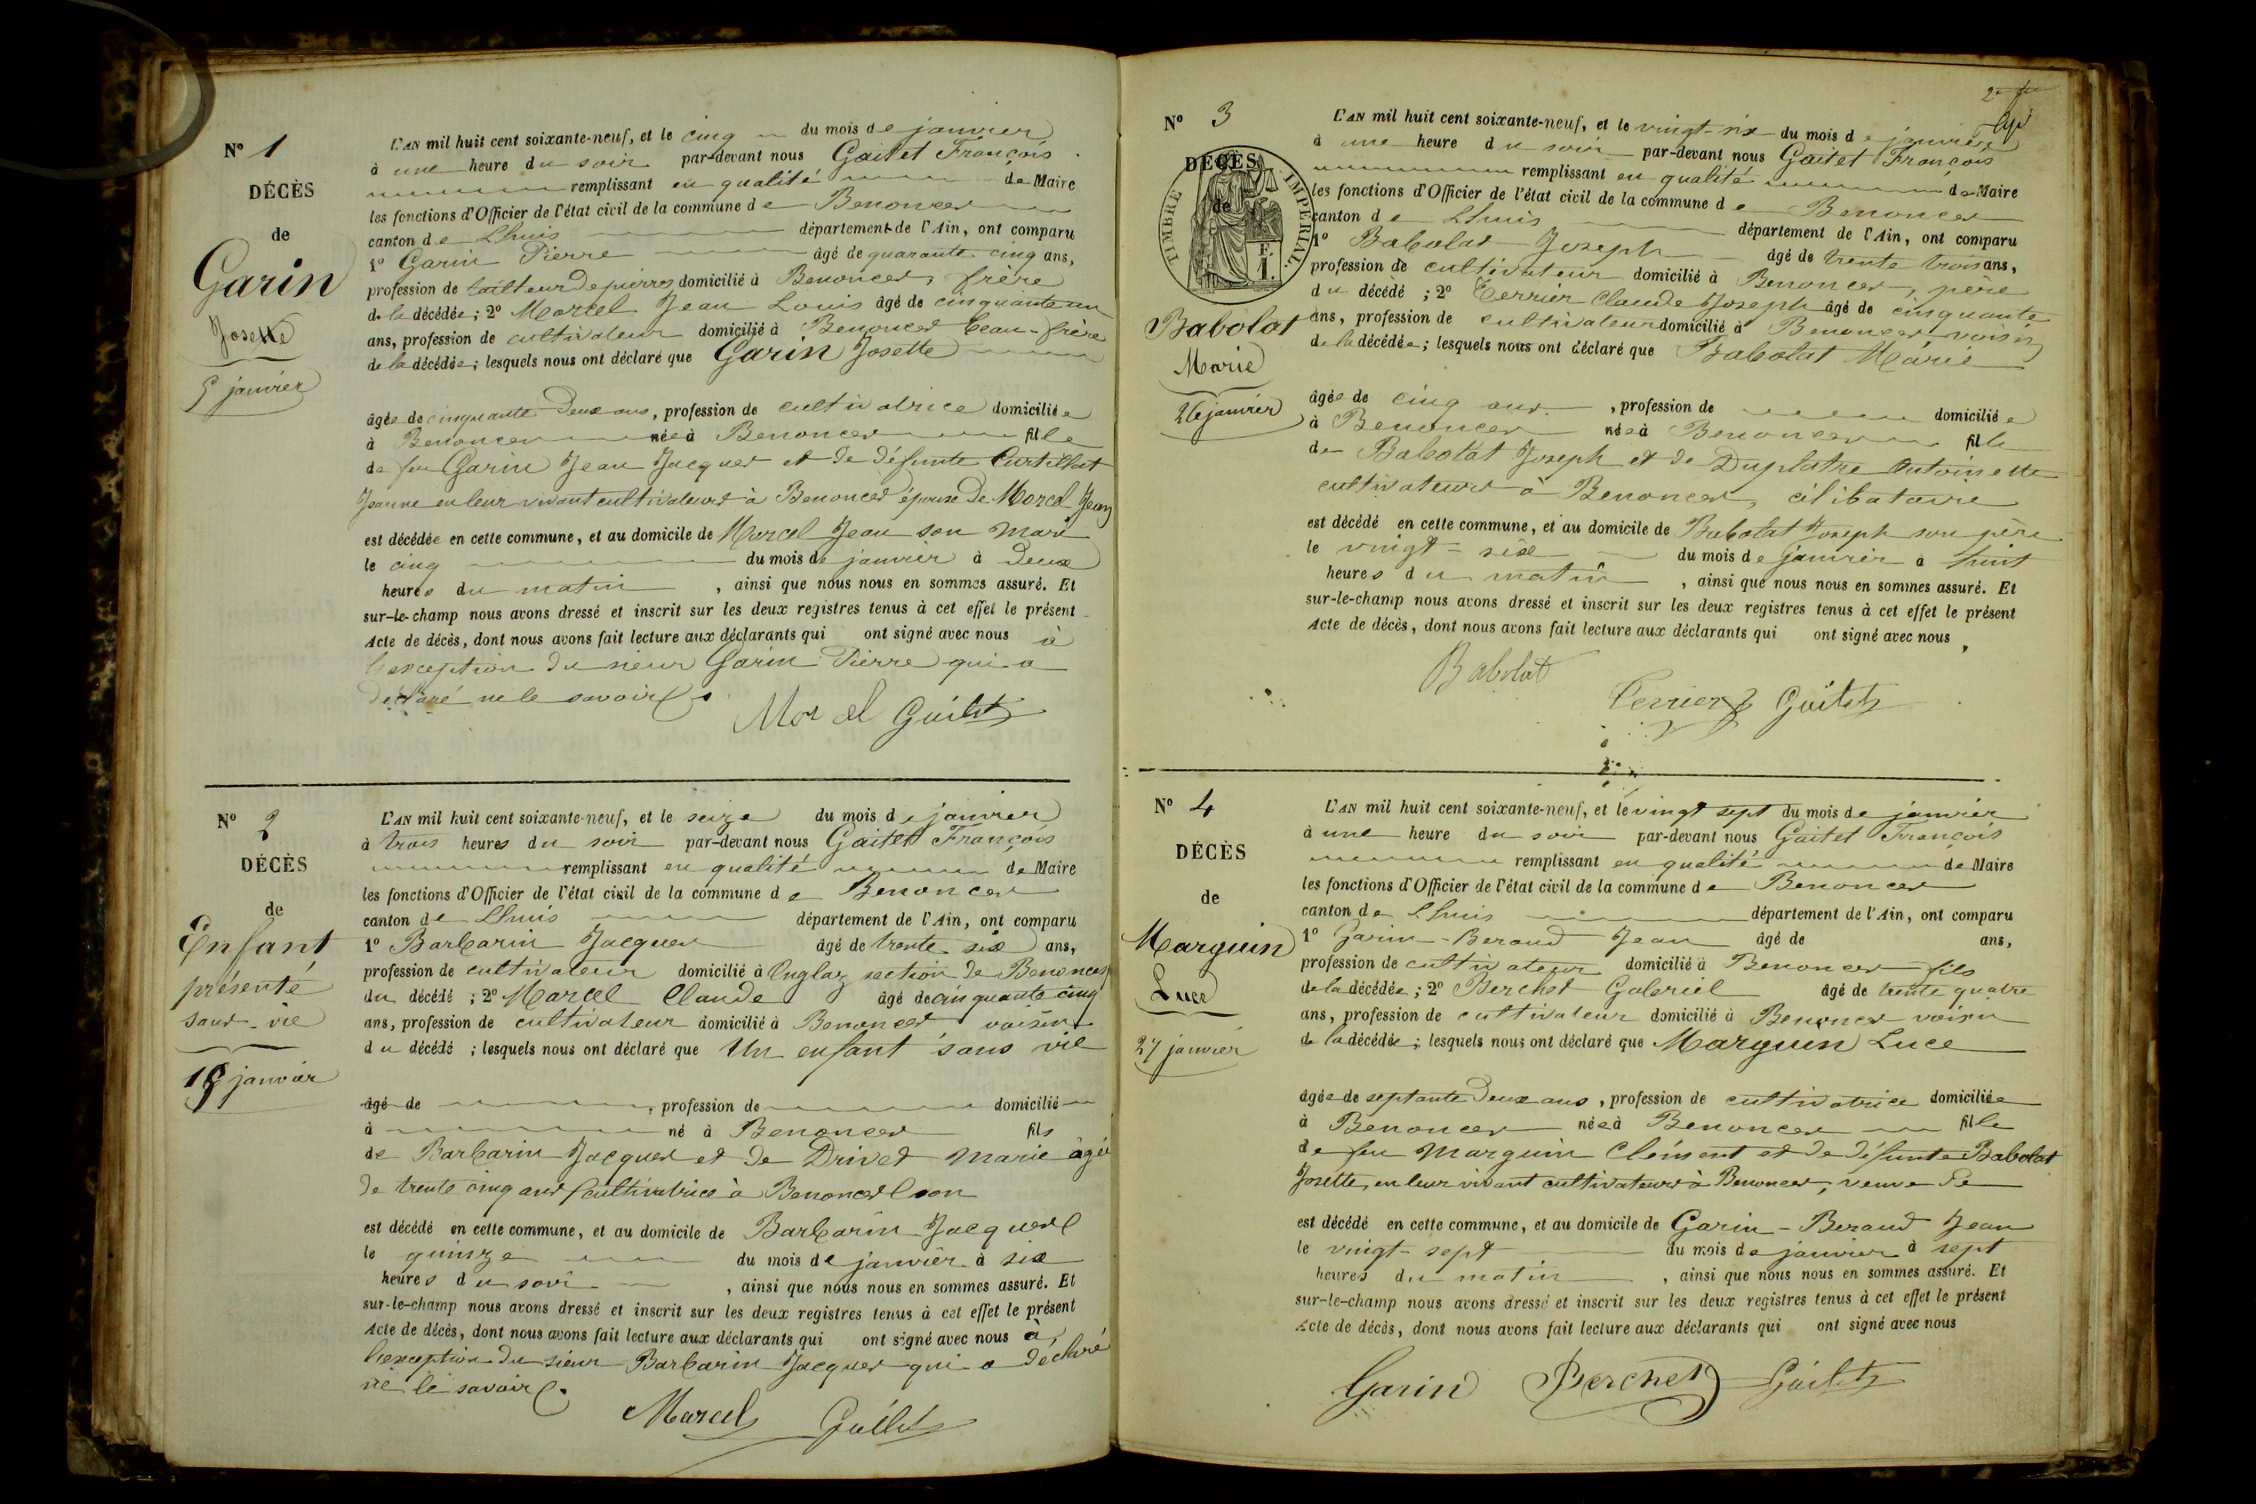 Nº 1
DÉCÈS
de
Garin
Josette
5 janvier
L'AN mil huit cent soixante-neuf, et le cinq du mois de janvier
à une heure du soir par-devant nous Gaitet François
remplissant en qualité de Maire
les fonctions d'Officier de l'état civil de la commune de Benonces
canton de Lhuis département de l'Ain, ont comparu
1º Garin Pierre âgé de quarante cinq ans,
profession de tailleur de pierres domicilié à Benonces, frère
de la décédée; 2º Marcel Jean Louis âgé de cinquante un
ans, profession de cultivateur domicilié à Benonces beau-frère
de la décédée; lesquels nous ont déclaré que Garin Josette
âgée de cinquante deux ans, profession de cultivatrice domiciliée
à Benonces née à Benonces fille
de feu Garin Jean Jacques et de défunte Curtilhat
Jeanne en leur vivant cultivateurs à Benonces épouse de Marcel Jean
est décédée en cette commune, et au domicile de Marcel Jean son mari
le cinq du mois de janvier à deux
heures du matin, ainsi que nous nous en sommes assuré. Et
sur-le-champ nous avons dressé et inscrit sur les deux registres tenus à cet effet le présent
Acte de décès, dont nous avons fait lecture aux déclarants qui ont signé avec nous à
l'exception du sieur Garin Pierre qui a
déclaré ne le savoir
Marcel Gaitet
Nº 2
DÉCÈS
de
Enfant
présenté
sans vie
janvier
L'AN mil huit cent soixante-neuf, et le seize du mois de janvier
à trois heures du soir par-devant nous Gaitet François
remplissant en qualité de Maire
les fonctions d'Officier de l'état civil de la commune de Benonces
canton de Lhuis département de l'Ain, ont comparu
1º Barbarin Jacques âgé de trente six ans,
profession de cultivateur domicilié à Onglas section de Benonces
du décédé ; 2º Marcel Claude âgé de cinquante cinq
ans, profession de cultivateur domicilié à Benonces voisin
du décédé ; lesquels nous ont déclaré que Un enfant sans vie
âgé de , profession de domicilié
à né à Benonces fils
de Barbarin Jacques et de Drivet Marie âgée
de trente cinq ans cultivatrice à Benonces son
est décédé en cette commune, et au domicile de Barbarin Jacques
le quinze du mois de janvier à six
heures du soir, ainsi que nous nous en sommes assuré. Et
sur-le-champ nous avons dressé et inscrit sur les deux registres tenus à cet effet le présent
Acte de décès, dont nous avons fait lecture aux déclarants qui ont signé avec nous à
l'exception du sieur Barbarin Jacques qui a déclaré
ne le savoir
Marcel Gaitet
Nº 3
DÉCÈS
de
TIMBRE IMPÉRIAL
F.
1.
Babolat
Marie
26 janvier
L'AN mil huit cent soixante-neuf, et le vingt-six du mois de janvier
à une heure du soir par-devant nous Gaitet François
remplissant en qualité de Maire
les fonctions d'Officier de l'état civil de la commune de Benonces
canton de Lhuis département de l'Ain, ont comparu
1º Babolat Joseph âgé de trente trois ans,
profession de cultivateur domicilié à Benonces, père
du décédé ; 2º Terrier Claude Joseph âgé de cinquante
ans, profession de cultivateur domicilié à Benonces voisin
de la décédée; lesquels nous ont déclaré que Babolat Marie
âgée de cinq ans, profession de domiciliée
à Benonces née à Benonces fille
de Babolat Joseph et de Duplatre Antoinette
cultivateurs à Benonces, célibataire
est décédé en cette commune, et au domicile de Babolat Joseph son père
le vingt-six du mois de janvier à huit
heures du matin, ainsi que nous nous en sommes assuré. Et
sur-le-champ nous avons dressé et inscrit sur les deux registres tenus à cet effet le présent
Acte de décès, dont nous avons fait lecture aux déclarants qui ont signé avec nous.
Babolat
Terrier Gaitet
Nº 4
DÉCÈS
de
Marguin
Luce
27 janvier
L'AN mil huit cent soixante-neuf, et le vingt sept du mois de janvier
à une heure du soir par-devant nous Gaitet François
remplissant en qualité de Maire
les fonctions d'Officier de l'état civil de la commune de Benonces
canton de Lhuis département de l'Ain, ont comparu
1º Garin-Beraud Jean âgé de ans,
profession de cultivateur domicilié à Benonces fils
de la décédée; 2º Berchet Gabriel âgé de trente quatre
ans, profession de cultivateur domicilié à Benonces voisin
de la décédée; lesquels nous ont déclaré que Marguin Luce
âgée de septante deux ans, profession de cultivatrice domiciliée
à Benonces née à Benonces fille
de feu Marguin Clément et de défunte Babolat
Josette, en leur vivant cultivateurs à Benonces, veuve de
est décédé en cette commune, et au domicile de Garin-Beraud Jean
le vingt-sept du mois de janvier à sept
heures du matin, ainsi que nous nous en sommes assuré. Et
sur-le-champ nous avons dressé et inscrit sur les deux registres tenus à cet effet le présent
Acte de décès, dont nous avons fait lecture aux déclarants qui ont signé avec nous
Garin Berchet Gaitet